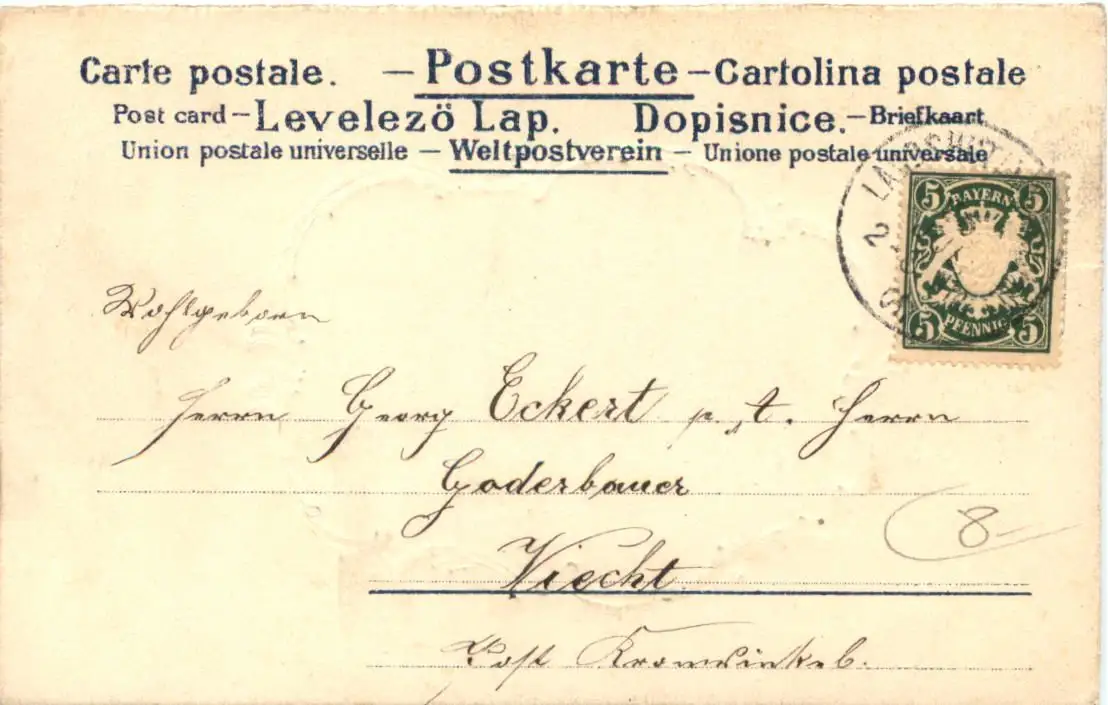 Carte postale. — Postkarte — Cartolina postale
Post card — Levelezö Lap. Dopisnice. — Briefkaart
Union postale universelle — Weltpostverein — Unione postale universale
2
5 BAYERN 5
5 PFENNIG 5
Wohlgeboren
Herrn Georg Eckert p. t. Herrn
Goderbauer
8
Viecht
Post Kronwinkel.